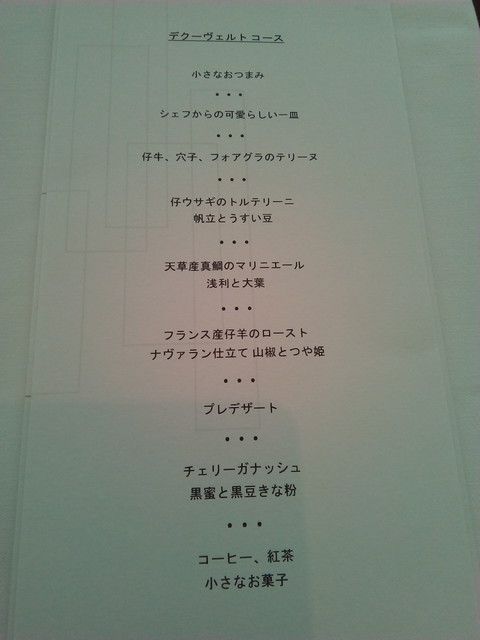 デクーヴェルト コース
小さなおつまみ
• • •
シェフからの可愛らしい一皿
• • •
仔牛、穴子、フォアグラのテリーヌ
• • •
仔ウサギのトルテリーニ
帆立とうすい豆
• • •
天草産真鯛のマリニエール
浅利と大葉
• • •
フランス産仔羊のロースト
ナヴァラン仕立て 山椒とつや姫
• • •
プレデザート
• • •
チェリーガナッシュ
黒蜜と黒豆きな粉
• • •
コーヒー、紅茶
小さなお菓子